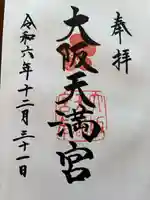 奉拝
大阪天満宮
令和六年十二月三十一日